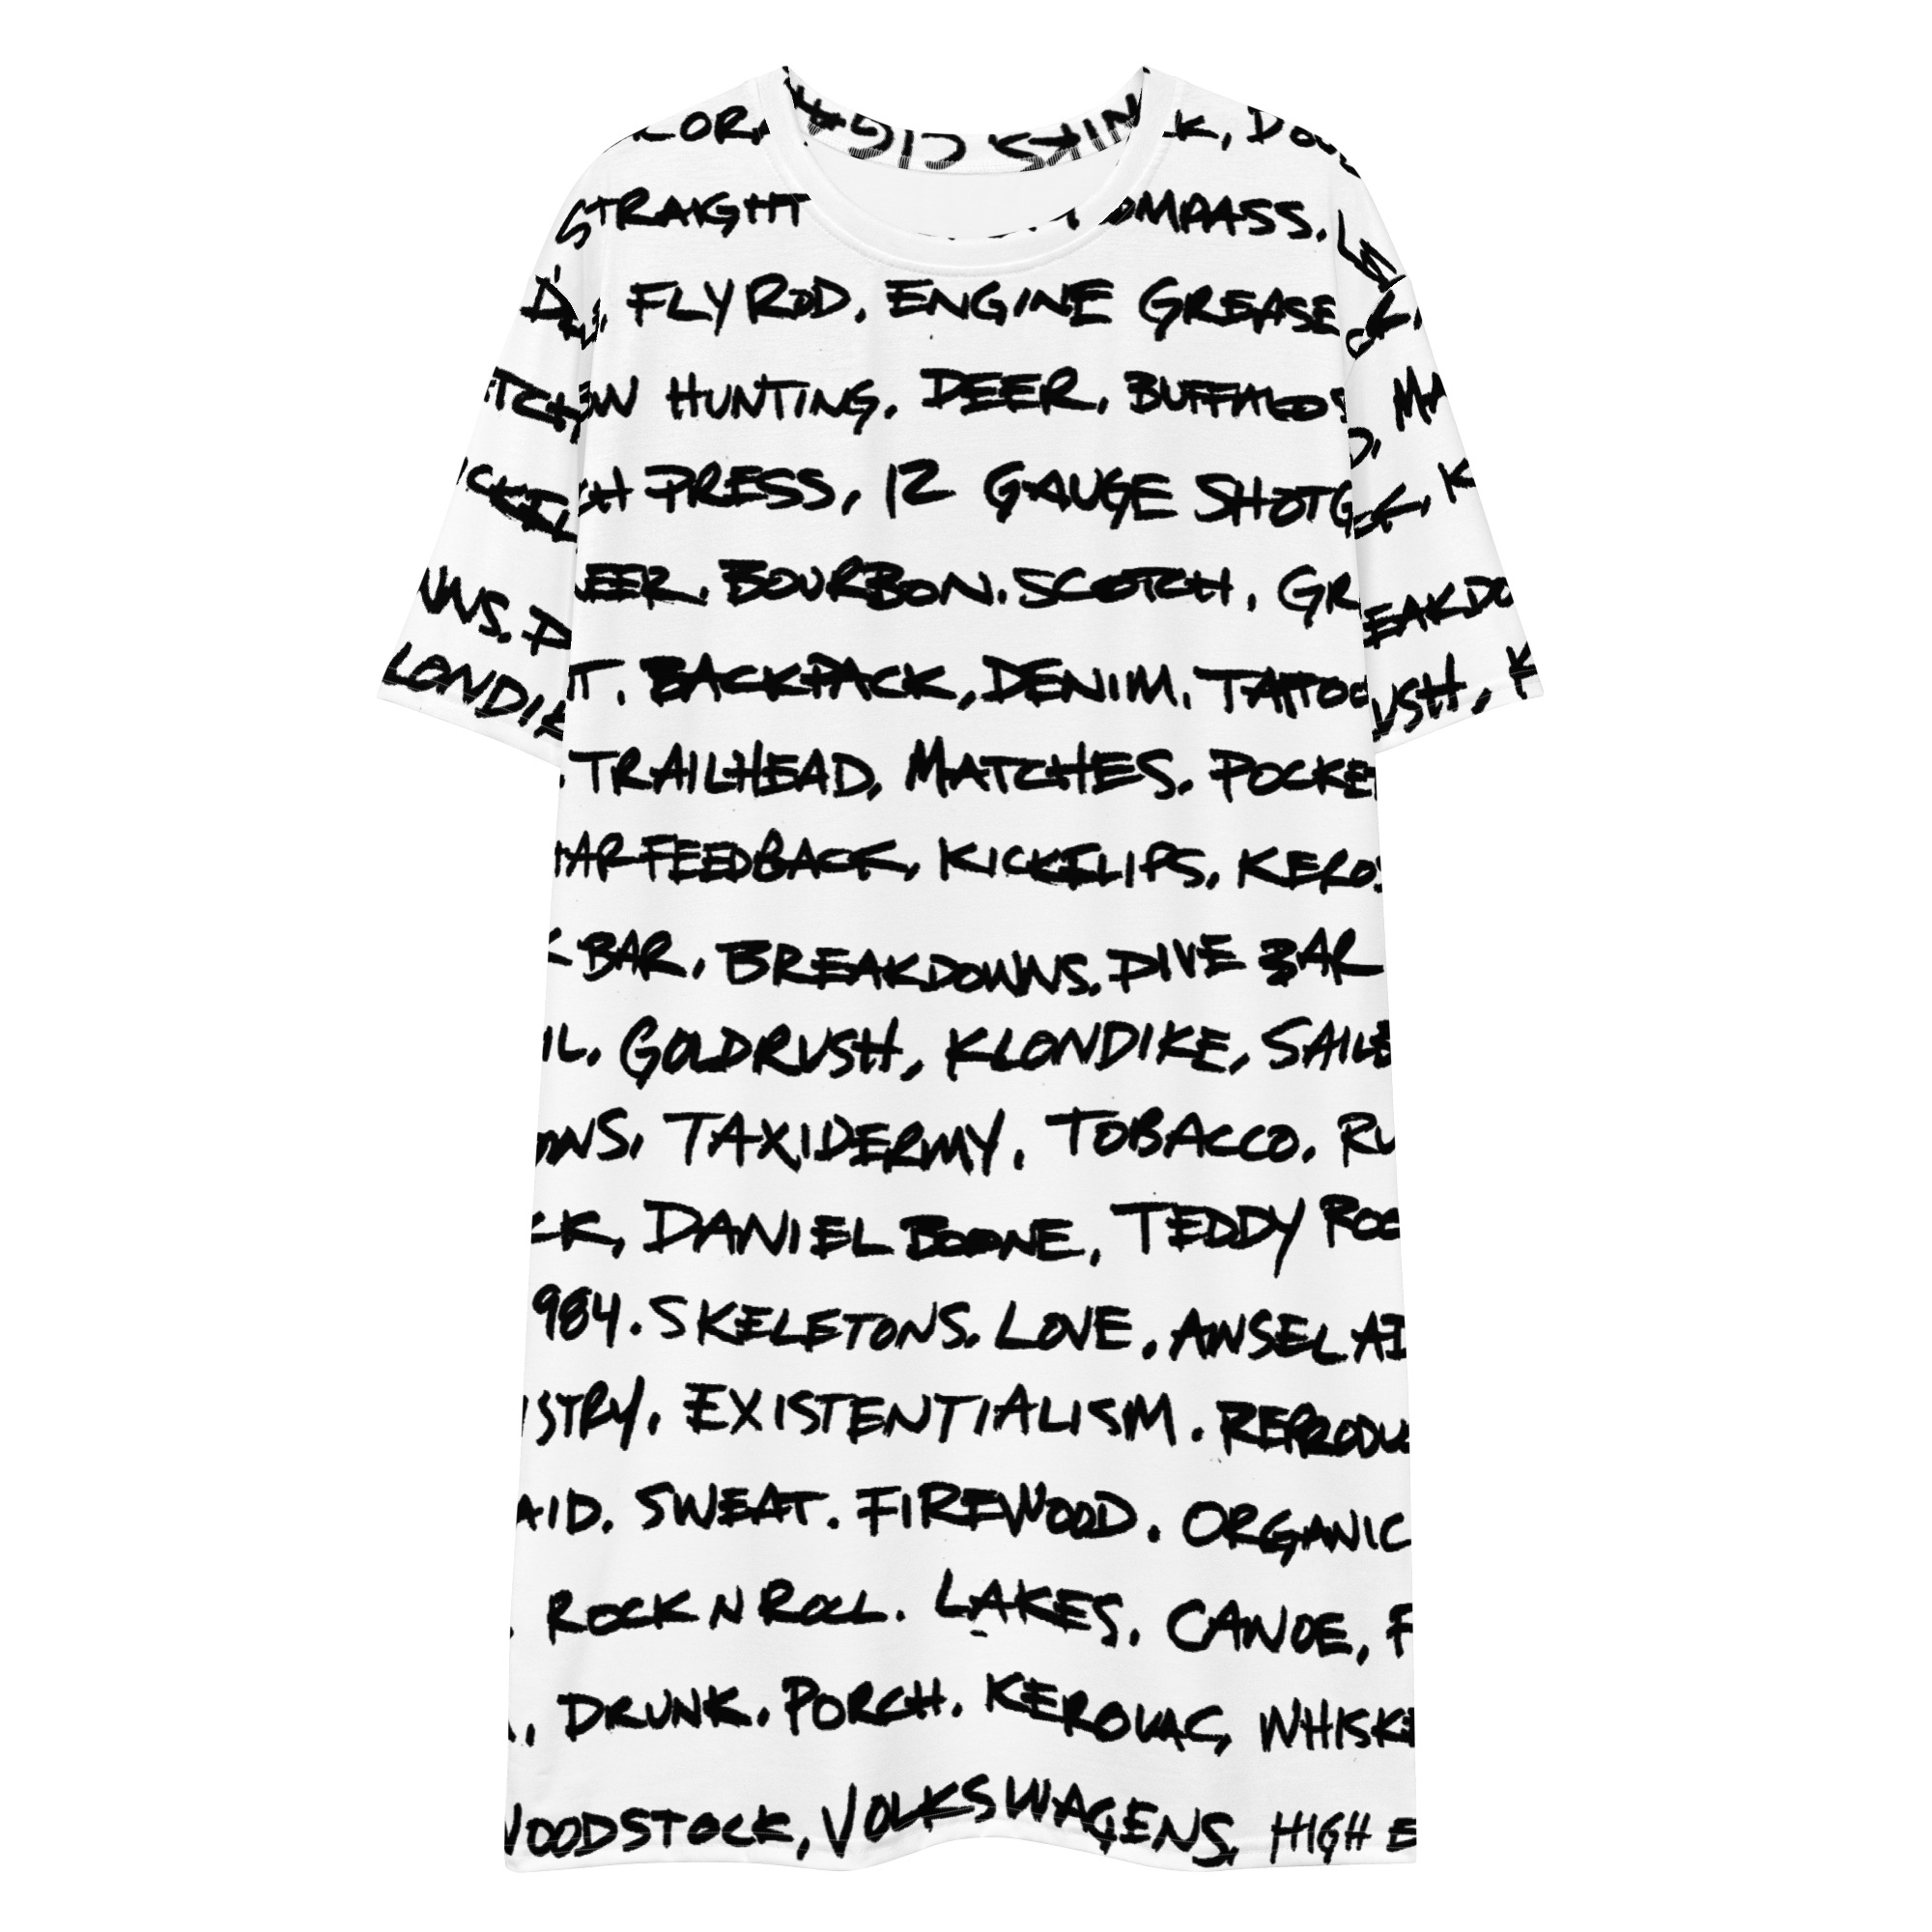 STRAIGHT OMPASS.
FLY ROD, ENGINE GREASE
HUNTING. DEER, BUFFALOS
PRESS, 12 GAUGE SHOTG
EER. BOURBON. SCOTCH, GR
T. BACKPACK, DENIM. TATTOO
. TRAILHEAD, MATCHES. POCKET
TAR FEEDBACK, KICKFLIPS, KEROS
K BAR, BREAKDOWNS. DIVE BAR
IL. GOLDRUSH, KLONDIKE, SAILB
ONS, TAXIDERMY, TOBACCO. RU
CK, DANIEL BOONE, TEDDY ROO
984. SKELETONS. LOVE, ANSEL AD
ISTRY. EXISTENTIALISM. REPRODU
AID. SWEAT. FIREWOOD. ORGANIC
. ROCK N ROLL. LAKES, CANOE, F
, DRUNK. PORCH. KEROUAC, WHISKE
WOODSTOCK, VOLKSWAGENS, HIGH E